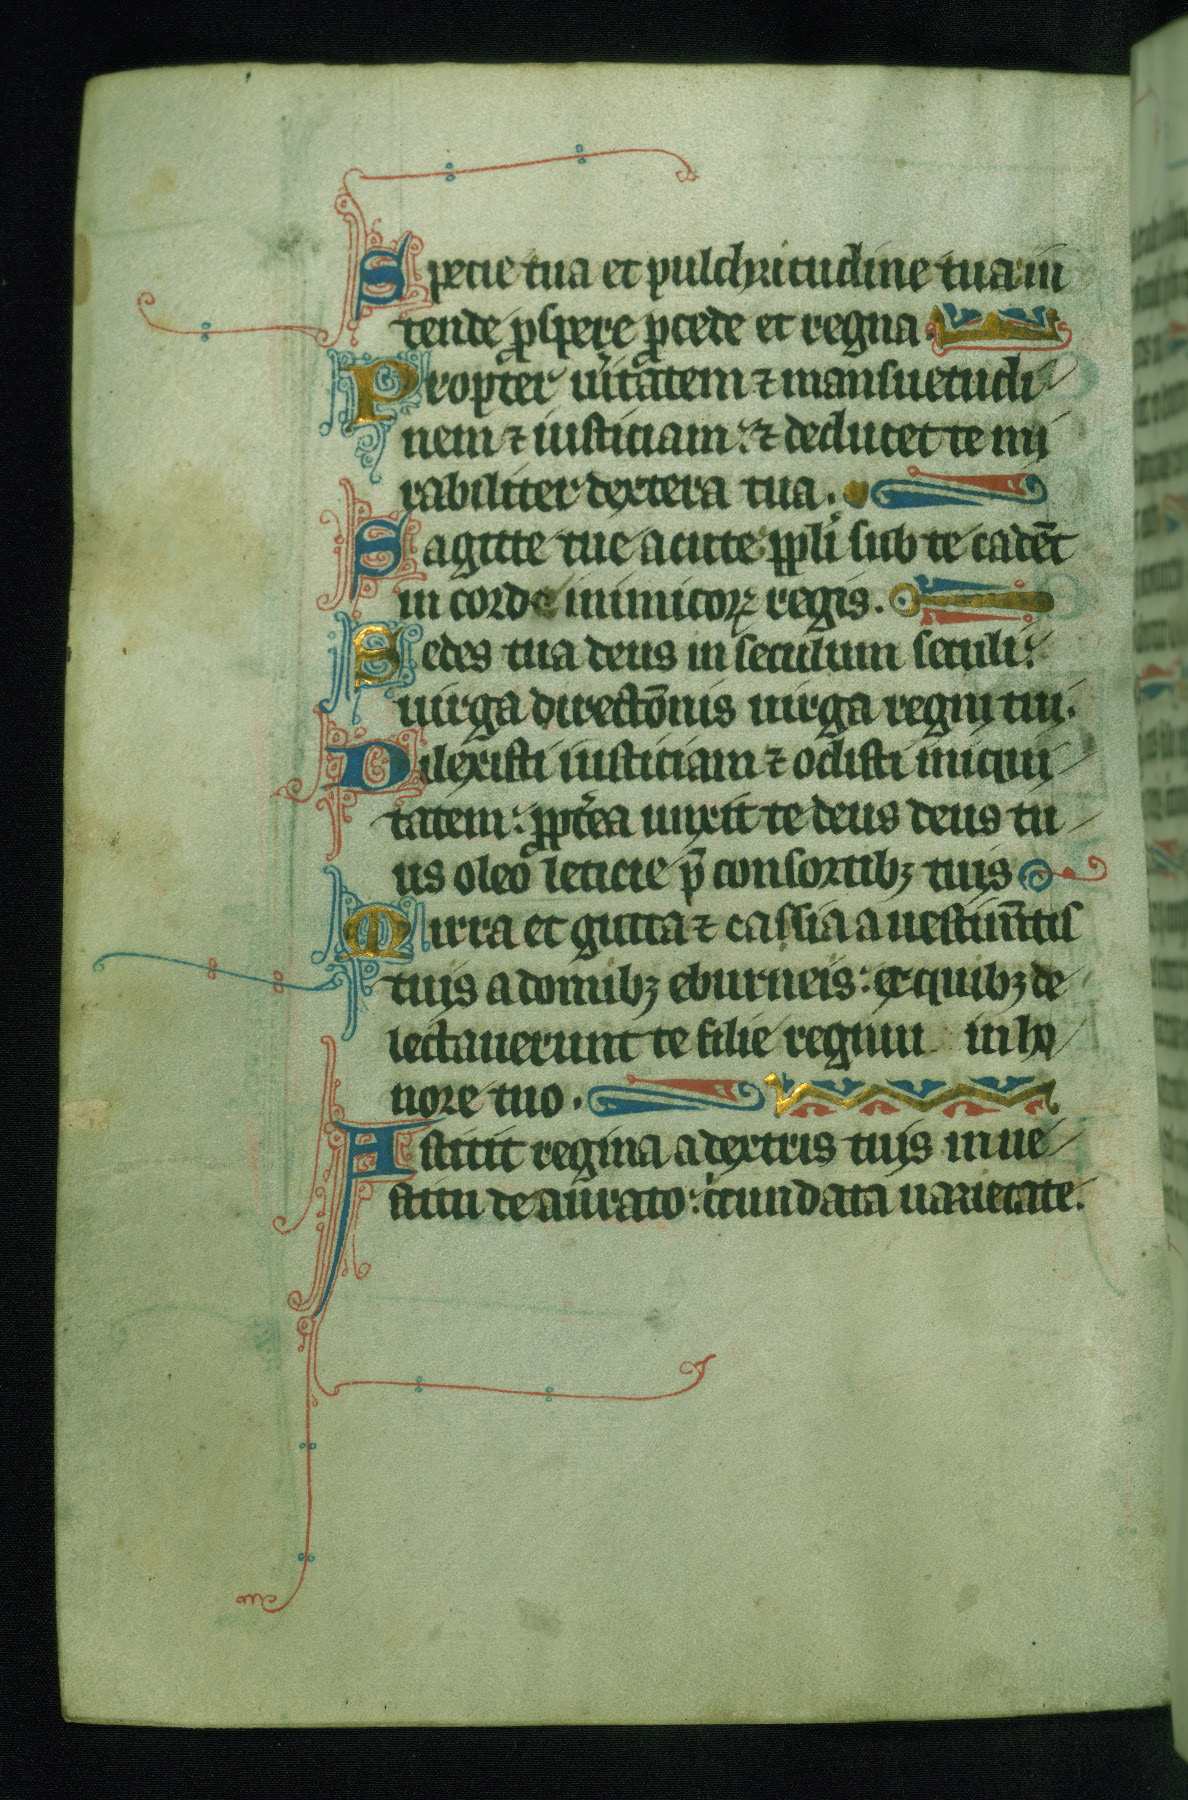 Specie tua et pulchritudine tua in
tende ꝓspere ꝓcede et regna.
Propter u̾itatem ⁊ mansuetudi
nem ⁊ iusticiam: ⁊ deducet te mi
rabiliter dextera tua.
Sagitte tue acute ppl̓i sub te cadēt
in corde inimicoꝝ regis.
Sedes tua deus in seculum seculi:
uirga directōnis uirga regni tui.
Dilexisti iusticiam ⁊ odisti iniqui
tatem: ꝓpt̾ea unxit te deus deus tu
us oleo leticie p̄ consortibꝫ tuis
Mirra et gutta ⁊ cassia a uestim̄tis
tuis a domibꝫ eburneis: ex quibꝫ de
lectauerunt te filie regum in ho
nore tuo.
Astitit regina a dextris tuis in ue
stitu de aurato: c̾cundata uarietate.